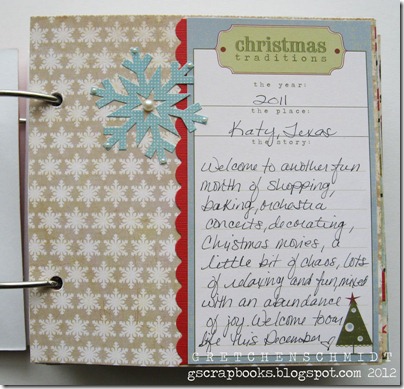 christmas
traditions
the year:
2011
the place:
Katy, Texas
the story:
Welcome to another fun
month of shopping,
baking, orchestra
concerts, decorating,
Christmas movies, a
little bit of chaos, lots
of relaxing and fun mixed
with an abundance
of joy. Welcome to our
life this December
GRETCHENSCHMIDT
gscrapbooks.blogspot.com 2012